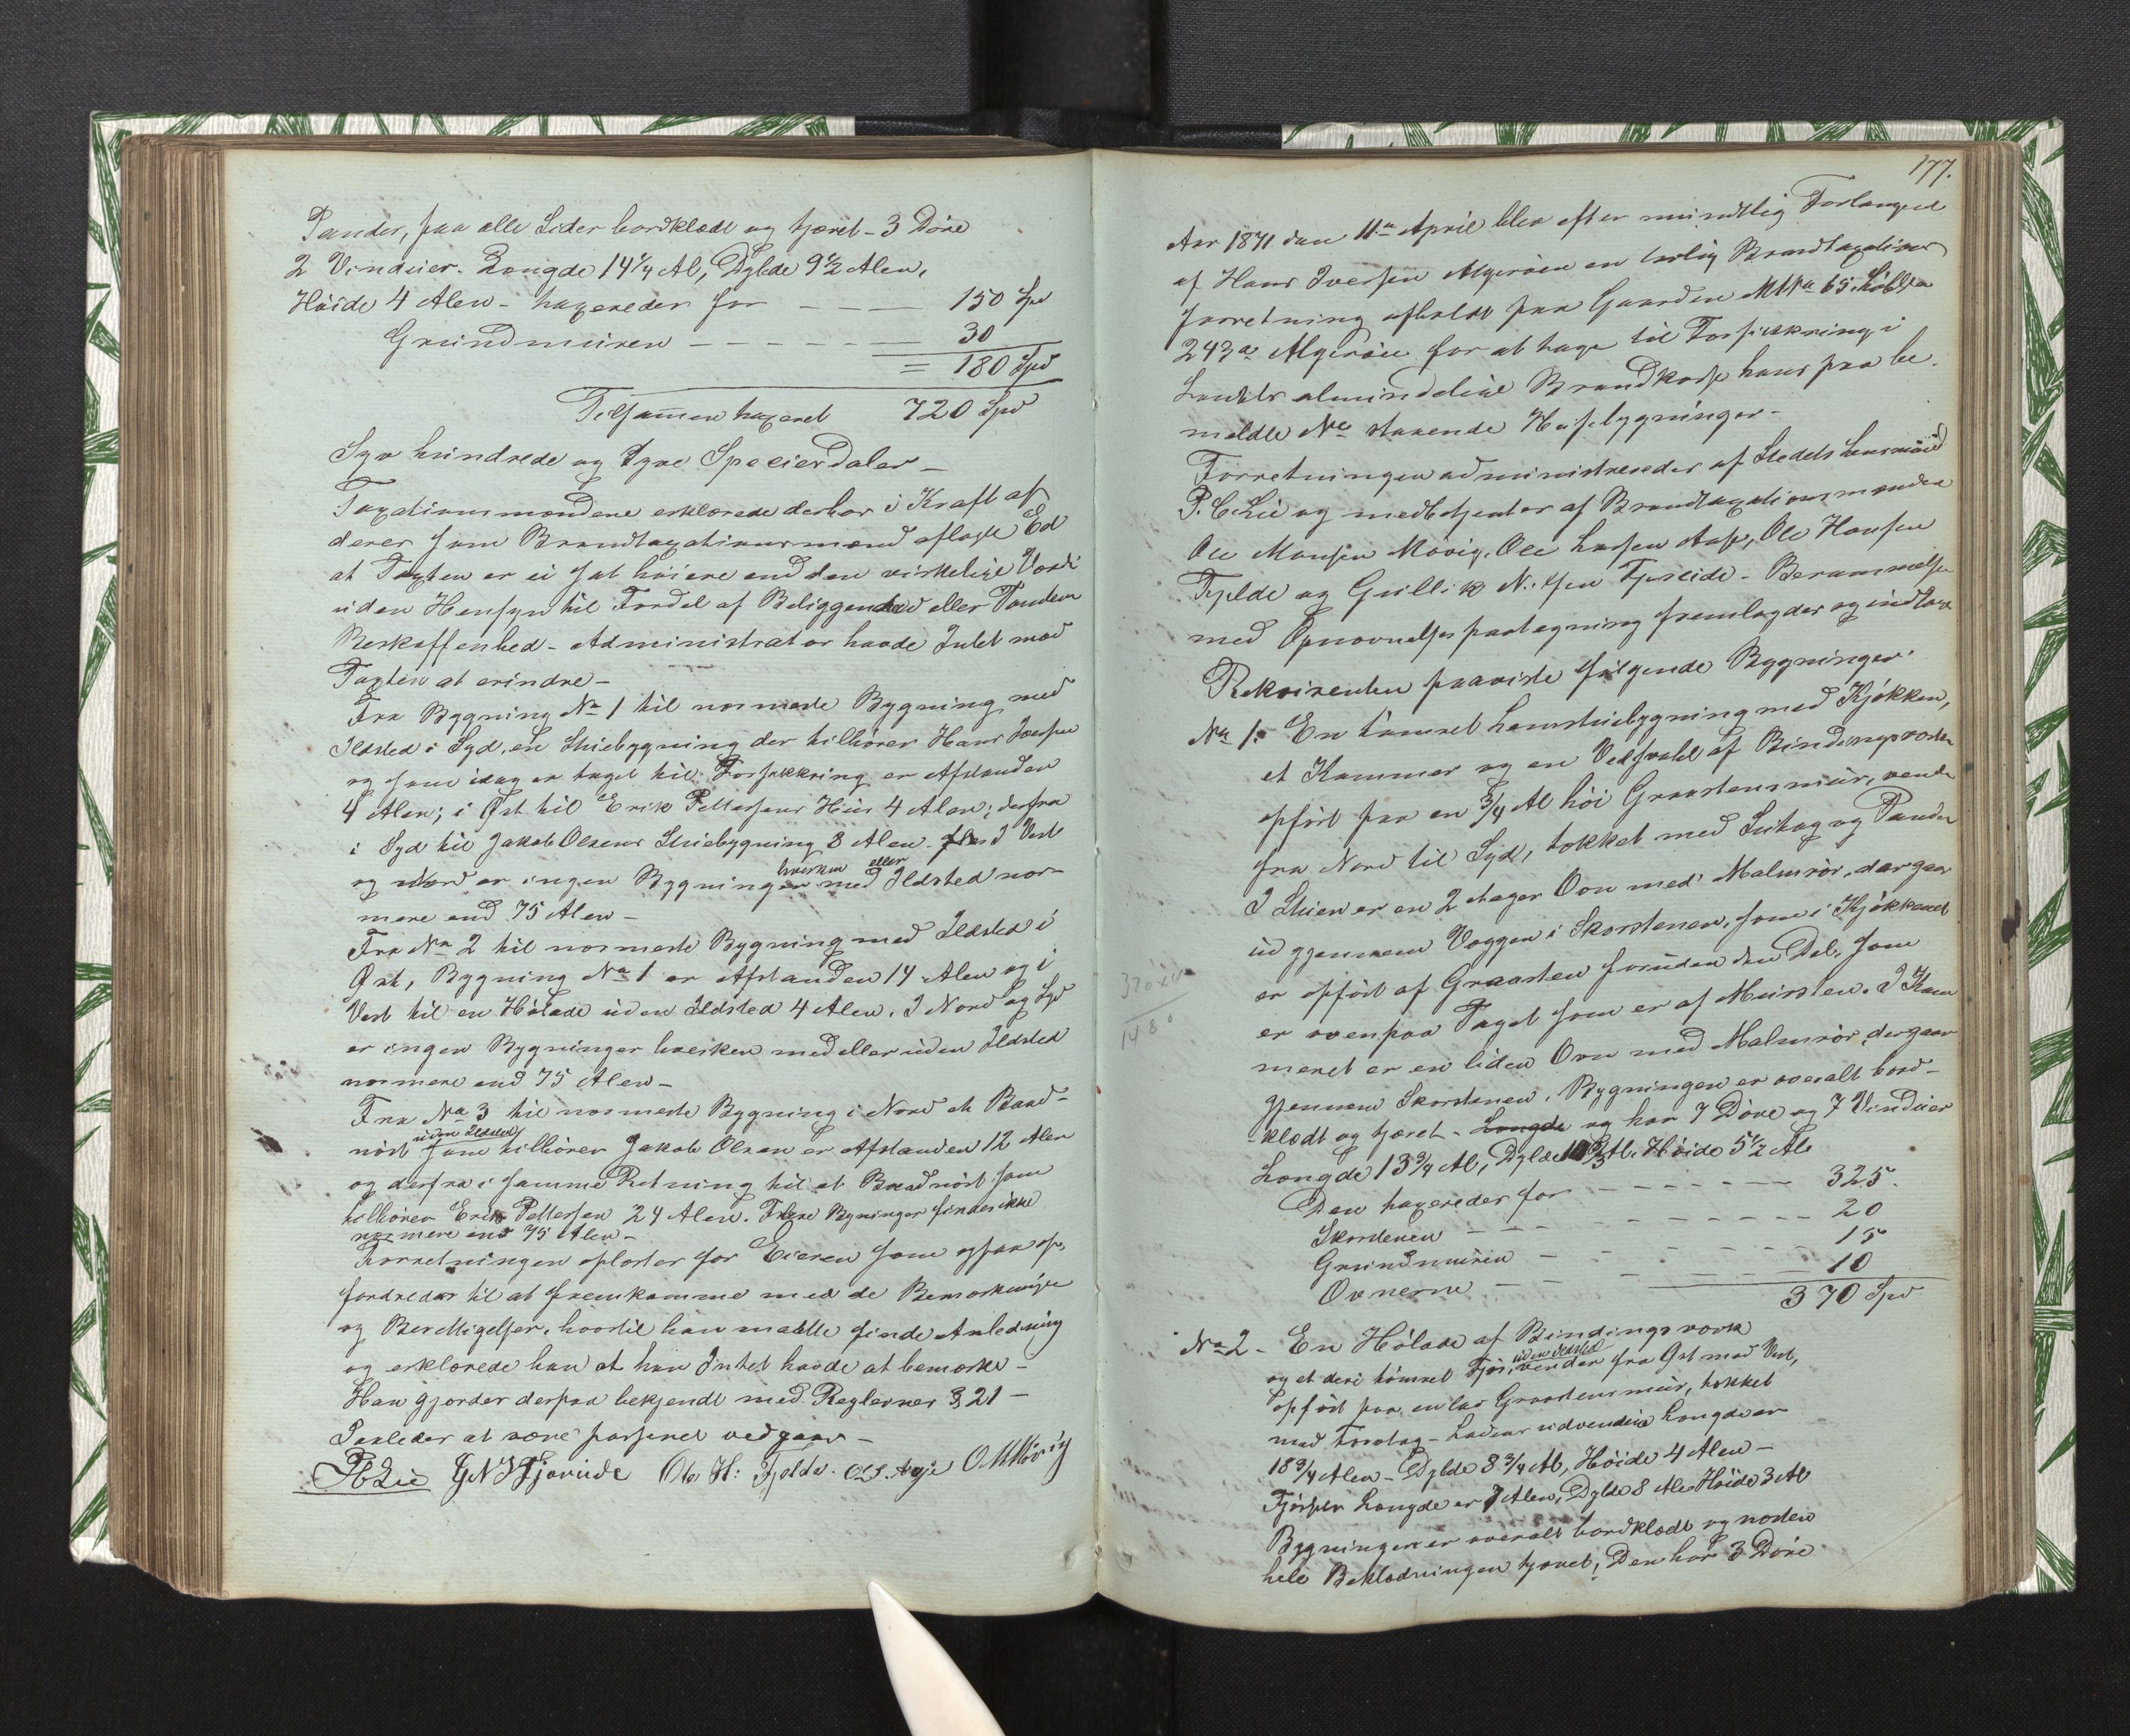 Pander, paa alle Sider bordklædt og tjæret - 3 Döre
2 Vinduer. Længde 14 1/4 Al, Dybde 9 1/2 Alen,
Höide 4 Alen - taxeredes for - - - 150 Spd
Grundmuren - - - - - - 30
= 180 Spd
Tilsammen taxeret 720 Spd
Syv hundrede og Tyve Speciesdaler -
Taxationsmændene erklærede derhos i Kraft af
deres som Brandtaxationsmænd aflagte Ed
at Taxten er ei sat höiere end den virkelige Værdi
uden Hensyn til Fordel af Beliggenhed eller Tomtens
Beskaffenhed - Administrator havde Intet mod
Taxten at erindre -
Fra Bygning No 1 til nærmeste Bygning med
Ildsted i Syd, en Stuebygning der tilhörer Hans Iversen
og som idag er taget til Forsikkring er Afstanden
4 Alen; i Öst til Erik Pettersens Huus 4 Alen; derfra
i Syd til Jakob Olsens Stuebygning 8 Alen. I Vest
og Nord er ingen Bygninger hverken med eller Ildsted nær-
mere end 75 Alen -
Fra No 2 til nærmeste Bygning med Ildsted i
Öst, Bygning No 1 er Afstanden 14 Alen og i
Vest til en Hölade uden Ildsted 4 Alen. I Nord og Syd
er ingen Bygninger hverken med eller uden Ildsted
nærmere end 75 Alen -
Fra No 3 til nærmeste Bygning i Nord et Baad-
nöst uden Ildsted som tilhörer Jakob Olsen er Afstanden 12 Alen
og derfra i samme Retning til et Baadnöst som
tilhörer Erik Pettersen 24 Alen. Flere Bygninger findes ikke
nærmere end 75 Alen -
Forretningen oplæstes for Eieren som ogsaa op-
fordredes til at fremkomme med de Bemærkninger
og Berettigelser, hvortil han maatte finde Anledning
og erklærede han at han Intet havde at bemærke -
Han gjordes derpaa bekjendt med Reglernes § 21 -
Saaledes at være passeret vedgaaes -
PCLie GNTjoreide Ole H: Fjelde. OLS. Aase OMMövig
177.
Aar 1871 den 11te April blev efter mundtlig Forlangende
af Hans Iversen Algeröen en lovlig Brandtaxations
forretning afholdt paa Gaarden MNo 65. Löbno
243a Algeröen for at tage til Forsikkring i
Landets almindelige Brandkasse hans paa be-
meldte No staaende Husebygninger -
Forretningen administreredes af Stedets Lensmand
P. C. Lie og medbetjentes af Brandtaxationsmændene
Ole Monsen Mövig, Ole Larsen Aase, Ole Hansen
Fjelde og Gullik Nilsen Tjoreide - Berammelsen
med Opnævnelsespaategning fremlagdes og indtages
Rekvirenten paaviste fölgende Bygninger:
No 1. En tömret Lemstuebygning med Kjökken,
et Kammer og en Vedsvahl af Bindingsværk
opfört paa en 3/4 Al höi Graastensmuur, vender
fra Nord til Syd, tækket med Sutag og Pander
I Stuen er en 2 Etages Ovn med Malmrör, der gaar
ud gjennem Væggen i Skorstenen, som i Kjökkenet
er opfört af Graasten foruden den Del, som
er ovenpaa Taget som er af Mursten. I Kam
meret er en liden Ovn med Malmrör, der gaar
gjennem Skorstenen. Bygningen er overalt bord-
klædt og tjæret - Længde og har 7 Döre og 7 Vinduer
Længde 13 3/4 Al, Dybde Al. Höide 5 1/2 Al
Den taxeredes for - - - - 325.
Skorstenen - - - - 20
Grundmuren - - - - 15
Ovnerne - - - - 10
370 Spd
No 2 - En Hölade af Bindingsværk
og et deri tömret Fjös, uden Ildsted vender fra Öst mod Vest,
opfört paa en lav Graastensmuur, tækket
med Torvtag - Ladens udvendige Længde er
18 3/4 Alen - Dybde 8 3/4 Al, Höide 4 Alen -
Fjösets Længde er 7 Alen, Dybde 8 Alen Höide 3 Al
Bygningen er overalt bordklædt og næsten
hele Beklædningen tjæret, Den har 3 Döre